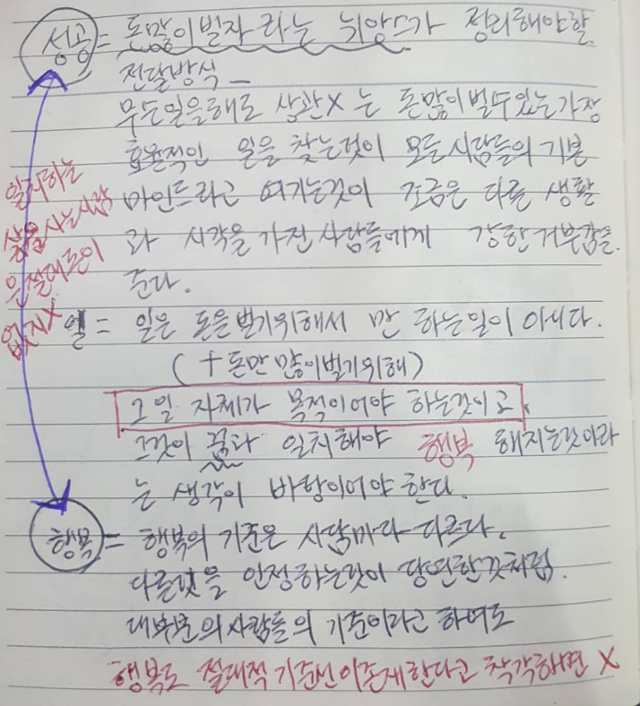 성공 = 돈많이벌자 라는 뉘앙스가 정리해야할
전달방식
무슨일을해도 상관X 는 돈많이벌수있는가장
효율적인 일을 찾는것이 모든사람들의 기본
마인드라고 여기는것이 조금은 다른 생활
과 시각을 가진 사람들에게 강한거부감을
준다.
일치하는
삶을 사는사람
은절대로이
없지X
일 = 일은 돈을벌기위해서 만 하는일이 아니다.
(+돈만 많이벌기위해)
그 일 자체가 목적이어야 하는것이고
그것이 꿈과 일치해야 행복 해지는것이라
는 생각이 바탕이어야 한다.
행복 = 행복의 기준은 사람마다 다르다.
다른것을 인정하는것이 당연한것처럼.
대부분의사람들의 기준이라고 하여도
행복도 절대적 기준선이존재한다고 착각하면 X